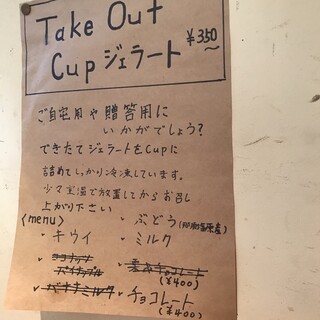 Take Out
Cup ジェラート ¥350〜
ご自宅用や贈答用に
いかがでしょう?
できたてジェラートをCupに
詰めてしっかり冷凍しています。
少々室温で放置してからお召し
上がり下さい
〈menu〉
・キウイ
ココナッツ
パイナップル
・バナナミルク
・ぶどう
・ミルク
チョコレート
(¥400)
・チョコレート
(¥400)